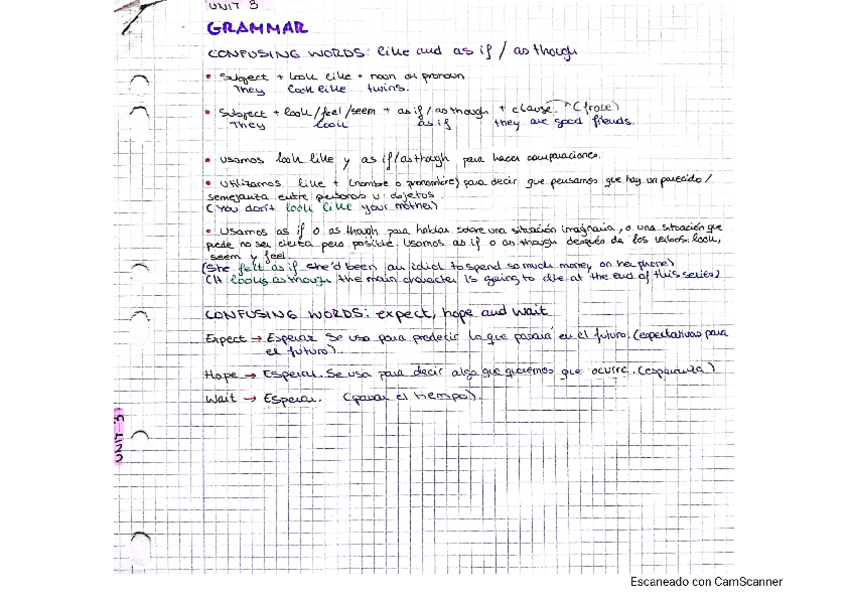 UNIT 3
GRAMMAR
CONFUSING WORDS: like and as if / as though
• Subject + look like + noun or pronoun
They look like twins.
• Subject + look/feel/seem + as if/as though + clause (frase)
They look as if they are good friends.
• Usamos look like y as if/as though para hacer comparaciones.
• Utilizamos like + (nombre o pronombre) para decir que pensamos que hay un parecido/
semejanza entre personas u objetos.
(You don't look like your mother)
• Usamos as if o as though para hablar sobre una situación imaginaria, o una situación que
puede no ser cierta pero posible. Usamos as if o as though después de los verbos: look,
seem y feel.
(She felt as if she'd been an idiot to spend so much money on her phone)
(It looks as though the main character is going to die at the end of this series)
CONFUSING WORDS: expect, hope and wait
Expect → Esperar. Se usa para predecir lo que pasará en el futuro. (expectativas para
el futuro).
Hope → Esperar. Se usa para decir algo que queremos que ocurra. (esperanza)
Wait → Esperar. (pasar el tiempo).
UNIT 3
Escaneado con CamScanner